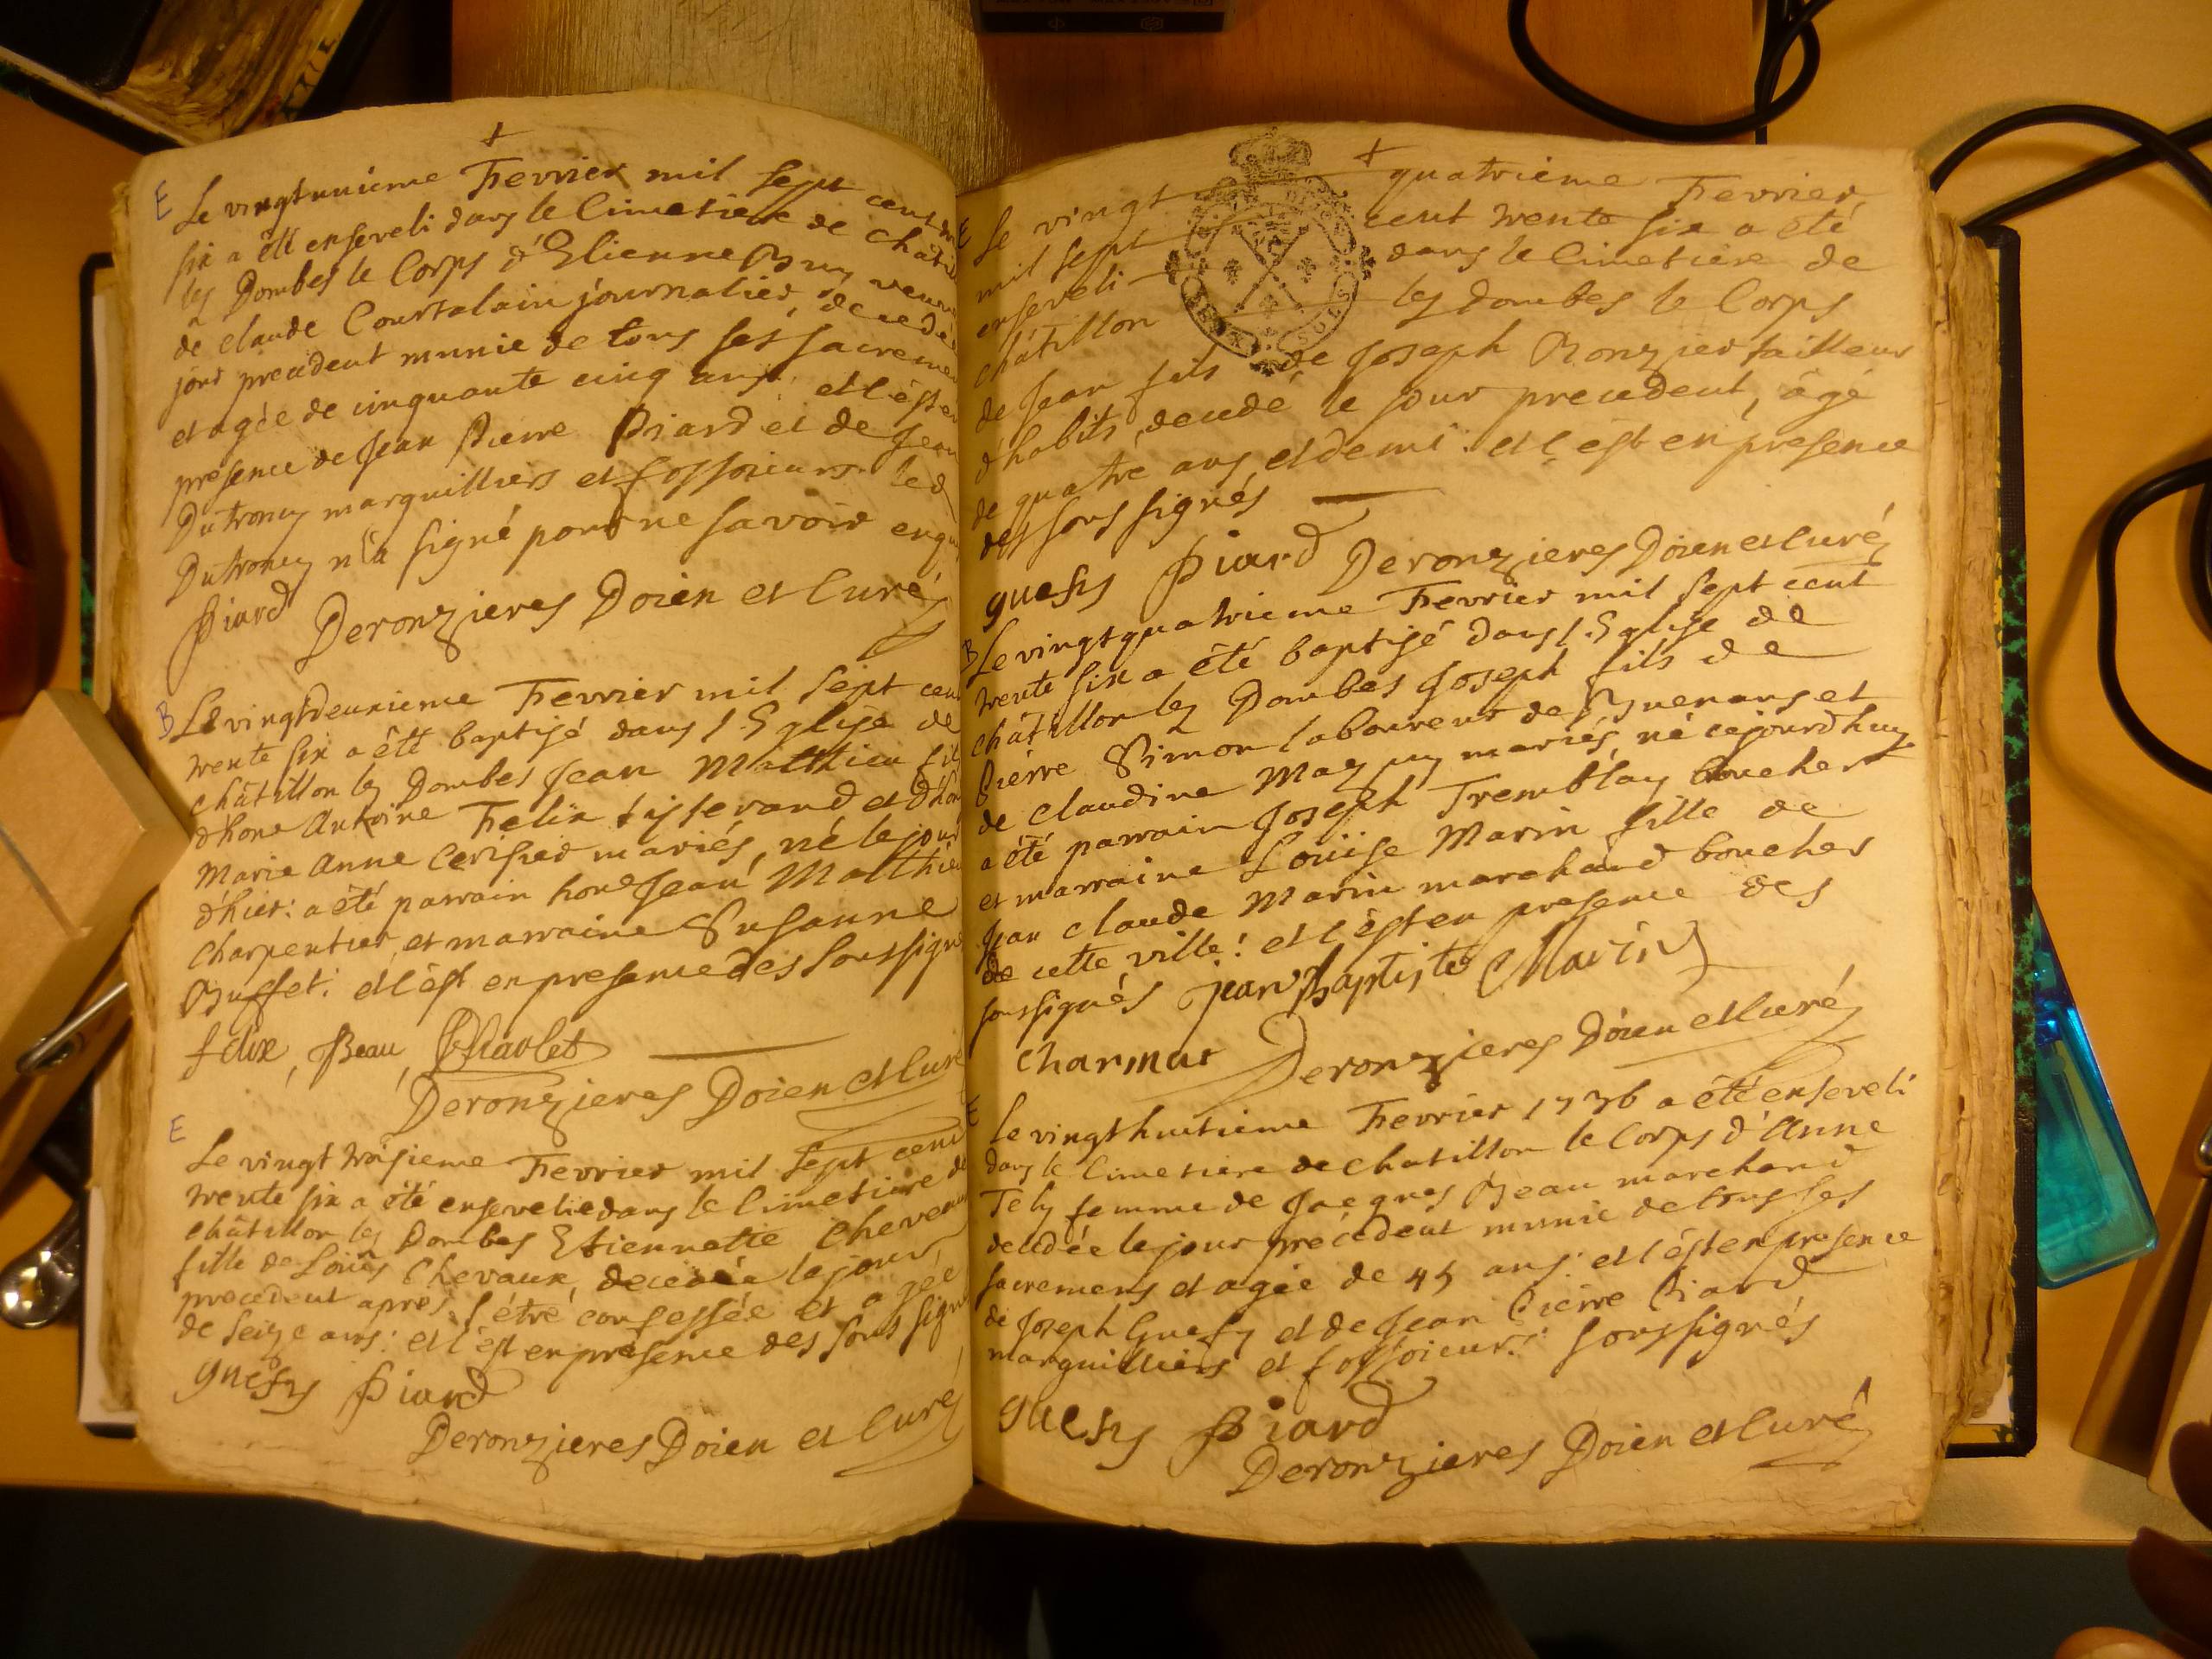 E
Le vingtunieme Fevrier mil sept cent
six a été enseveli dans le Cimetiere de
les Dombes le Corps d'Etienne
de claude Courtalain journalier,
jour precedent munie de tous ses
et agée de cinquante cinq ans: et c'est
presence de Jean Pierre Piard et de Jean
Dutroncy marguilliers et fossoieurs led
Dutroncy n'a signé pour ne savoir
Piard Deronzieres Doien et Curé
B
Le vingtdeuxieme Fevrier mil sept cent
trente six a été baptisé dans l'Eglise de
châtillon les Dombes Jean Matthieu fils
d'hone Antoine Felix tisserand et d'hone
Marie Anne Cerisier mariés, né le jour
d'hier: a été parrain hone Jean Matthieu
charpentier, et marraine Susanne
Buffet: et c'est en presence des Soussignés
felix, Beau,
Deronzieres Doien et Curé
E
Le vingt troisieme Fevrier mil Sept cent
trente six a été ensevelie dans le Cimetiere de
châtillon les Dombes Etiennette
fille de Louis Chevaux, decedée le jour
precedent apres s'être confessée et agée
de seize ans: et c'est en presence des sous signés
guesy Piard
Deronzieres Doien et Curé
E
Le vingt quatrieme Fevrier
mil sept cent trente six a été
enseveli dans le Cimetiere de
châtillon les Dombes le Corps
de Jean fils de Joseph Ronzier tailleur
d'habits, decedé le jour precedent, âgé
de quatre ans, et demi: et c'est en presence
des sous signés
guesy Piard Deronzieres Doien et Curé
B
Le vingtquatrieme Fevrier mil sept cent
trente six a été baptisé dans l'Eglise de
châtillon les Dombes Joseph fils de
Pierre Simon laboureur de Buenans et
de claudine mariés, né cejourdhuy
a été parrain Joseph Tremblay boucher
et marraine Louise Marin fille de
Jean claude Marin marchand boucher
de cette ville: et c'est en presence des
soussignés jean Baptiste Marin
charmat Deronzieres Doien et Curé
E
Le vingthuitieme Fevrier 1736 a été enseveli
dans le Cimetiere de chatillon le Corps d'Anne
femme de Jacques Beau marchand
decedée le jour precedent munie de tous ses
sacremens et agée de 45 ans: et c'est en presence
de Joseph Guesy et de Jean Pierre Piard
marguilliers et fossoieurs soussignés
guesy Piard
Deronzieres Doien et Curé